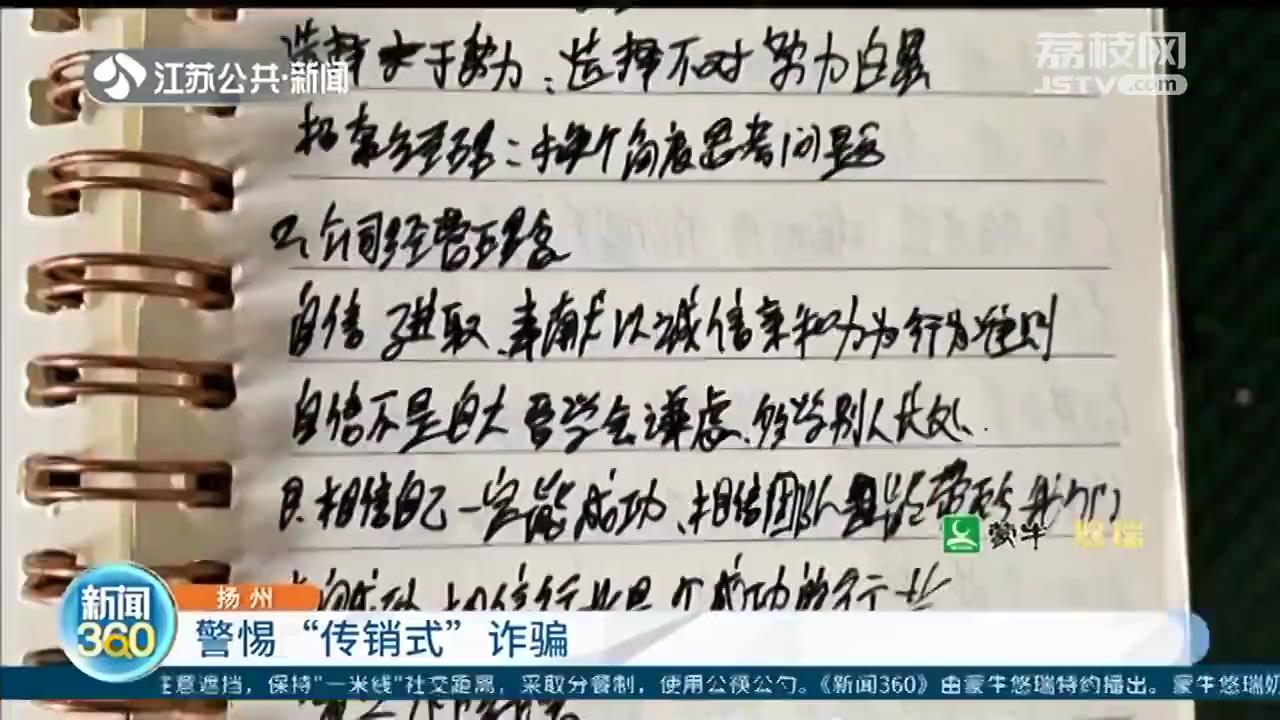 选择大于努力：选择不对努力白累
江苏公共·新闻
荔枝网
JSTV.com
换个角度思考问题
公司经营理念
自信 进取、奉献 以诚信亲和力为行为准则
自信不是自大 要学会谦虚、多学别人长处、
相信自己一定能成功、相信团队 能带领我们
蒙牛 悠瑞
走向成功 相信行业是个成功的行业
新闻
360
扬州
警惕“传销式”诈骗
注意遮挡，保持"一米线"社交距离，采取分餐制，使用公筷公勺。《新闻360》由蒙牛悠瑞特约播出。蒙牛悠瑞奶